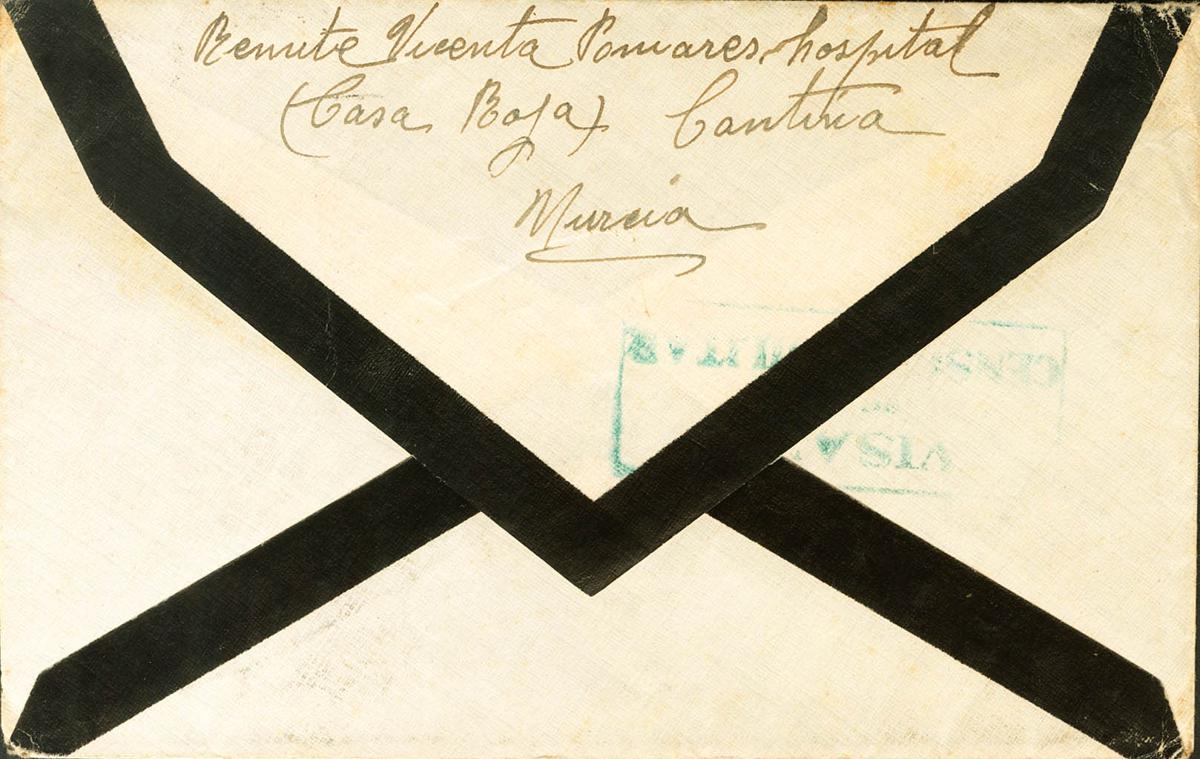 Remite Vicenta Pomares hospital
(Casa Roja) Cantina
Murcia
CENS MILITAR
VISA